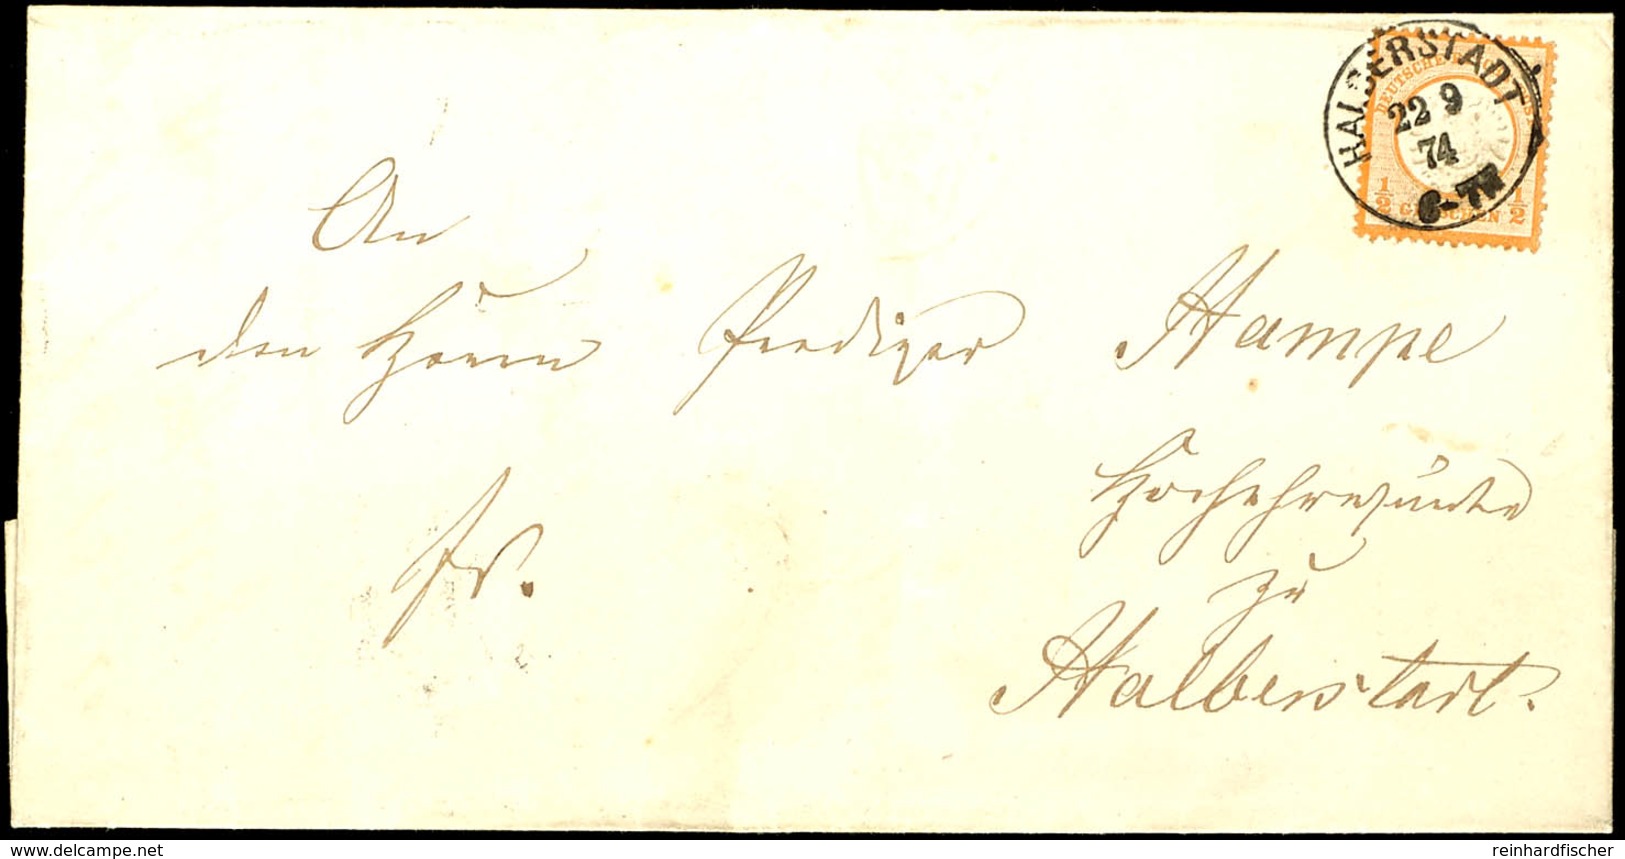 HALBERSTADT
22 9
74
6-7N
DEUTSCHE
1/2 GROSCHEN 1/2
An
den Herrn Prediger Hampe
Hochehrwürden
fr.
zu
Halberstadt.
www.delcampe.net
reinhardfischer